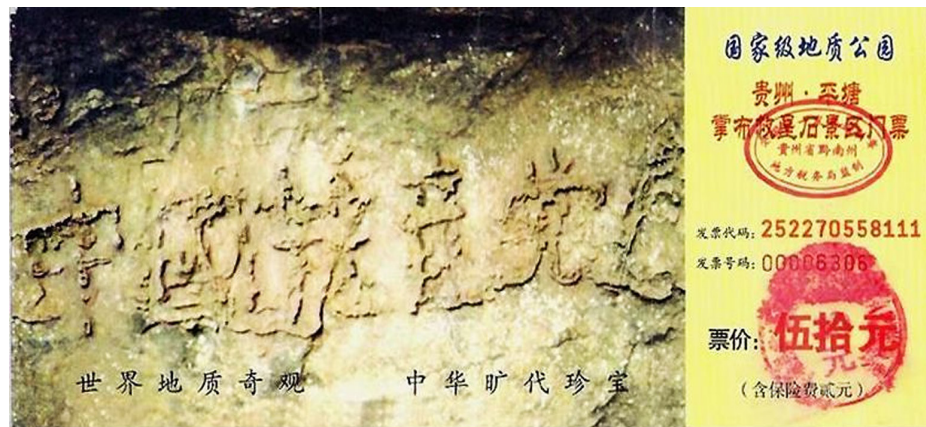 中國共产党
世界地质奇观 中华旷代珍宝
国家级地质公园
贵州·平塘
掌布救星石景区门票
贵州省黔南州
地方税务局监制
发票代码：252270558111
发票号码：00006306
票价：伍拾元
元
（含保险费贰元）